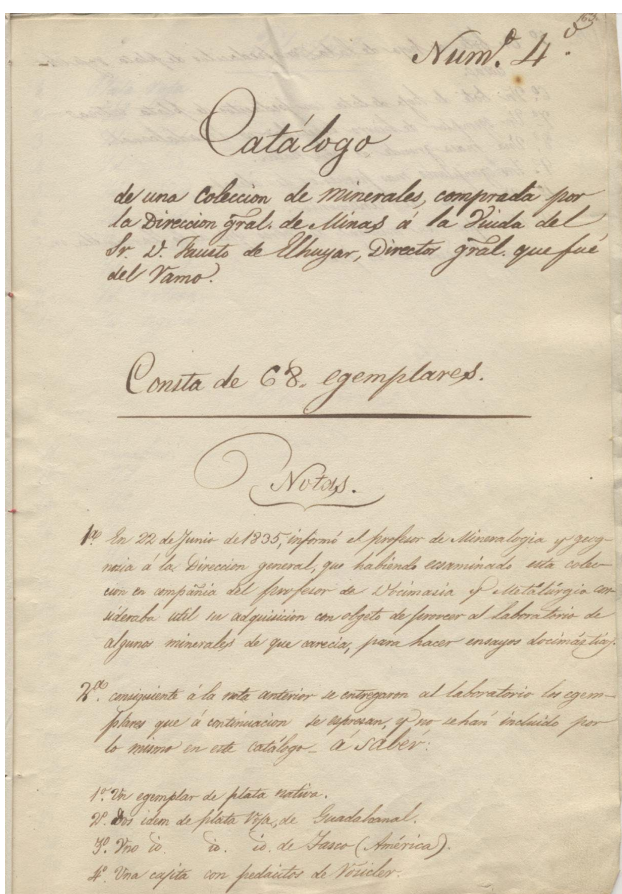 Num.º 4.º
Catálogo
de una Coleccion de minerales, comprada por
la Direcion gral. de Minas á la Viuda del
Sr. D. Fausto de Elhuyar, Director gral. que fué
del Ramo.
Consta de 68. egemplares.
Notas.
1ª. En 22 de Junio de 1835, informó el profesor de Mineralogia y geog-
nosia á la Direccion general, que habiendo ecsaminado esta colec-
cion en compañia del profesor de Docimasia y Metalúrgia con-
sideraba util su adquisicion con objeto de proveer al laboratorio de
algunos minerales de que carecia, para hacer ensayos docimásticos.
2ª. consiguiente á la nota anterior se entregaron al laboratorio los egem-
plares que á continuacion se espresan, y no se han incluido por
lo mismo en este catálogo_ á saber:
1º. Un egemplar de plata nativa.
2º. Dos idem de plata roja, de Guadalcanal.
3º. Uno id. id. id. de Tasco (América).
4º. Una cajita con pedacitos de Rosicler.